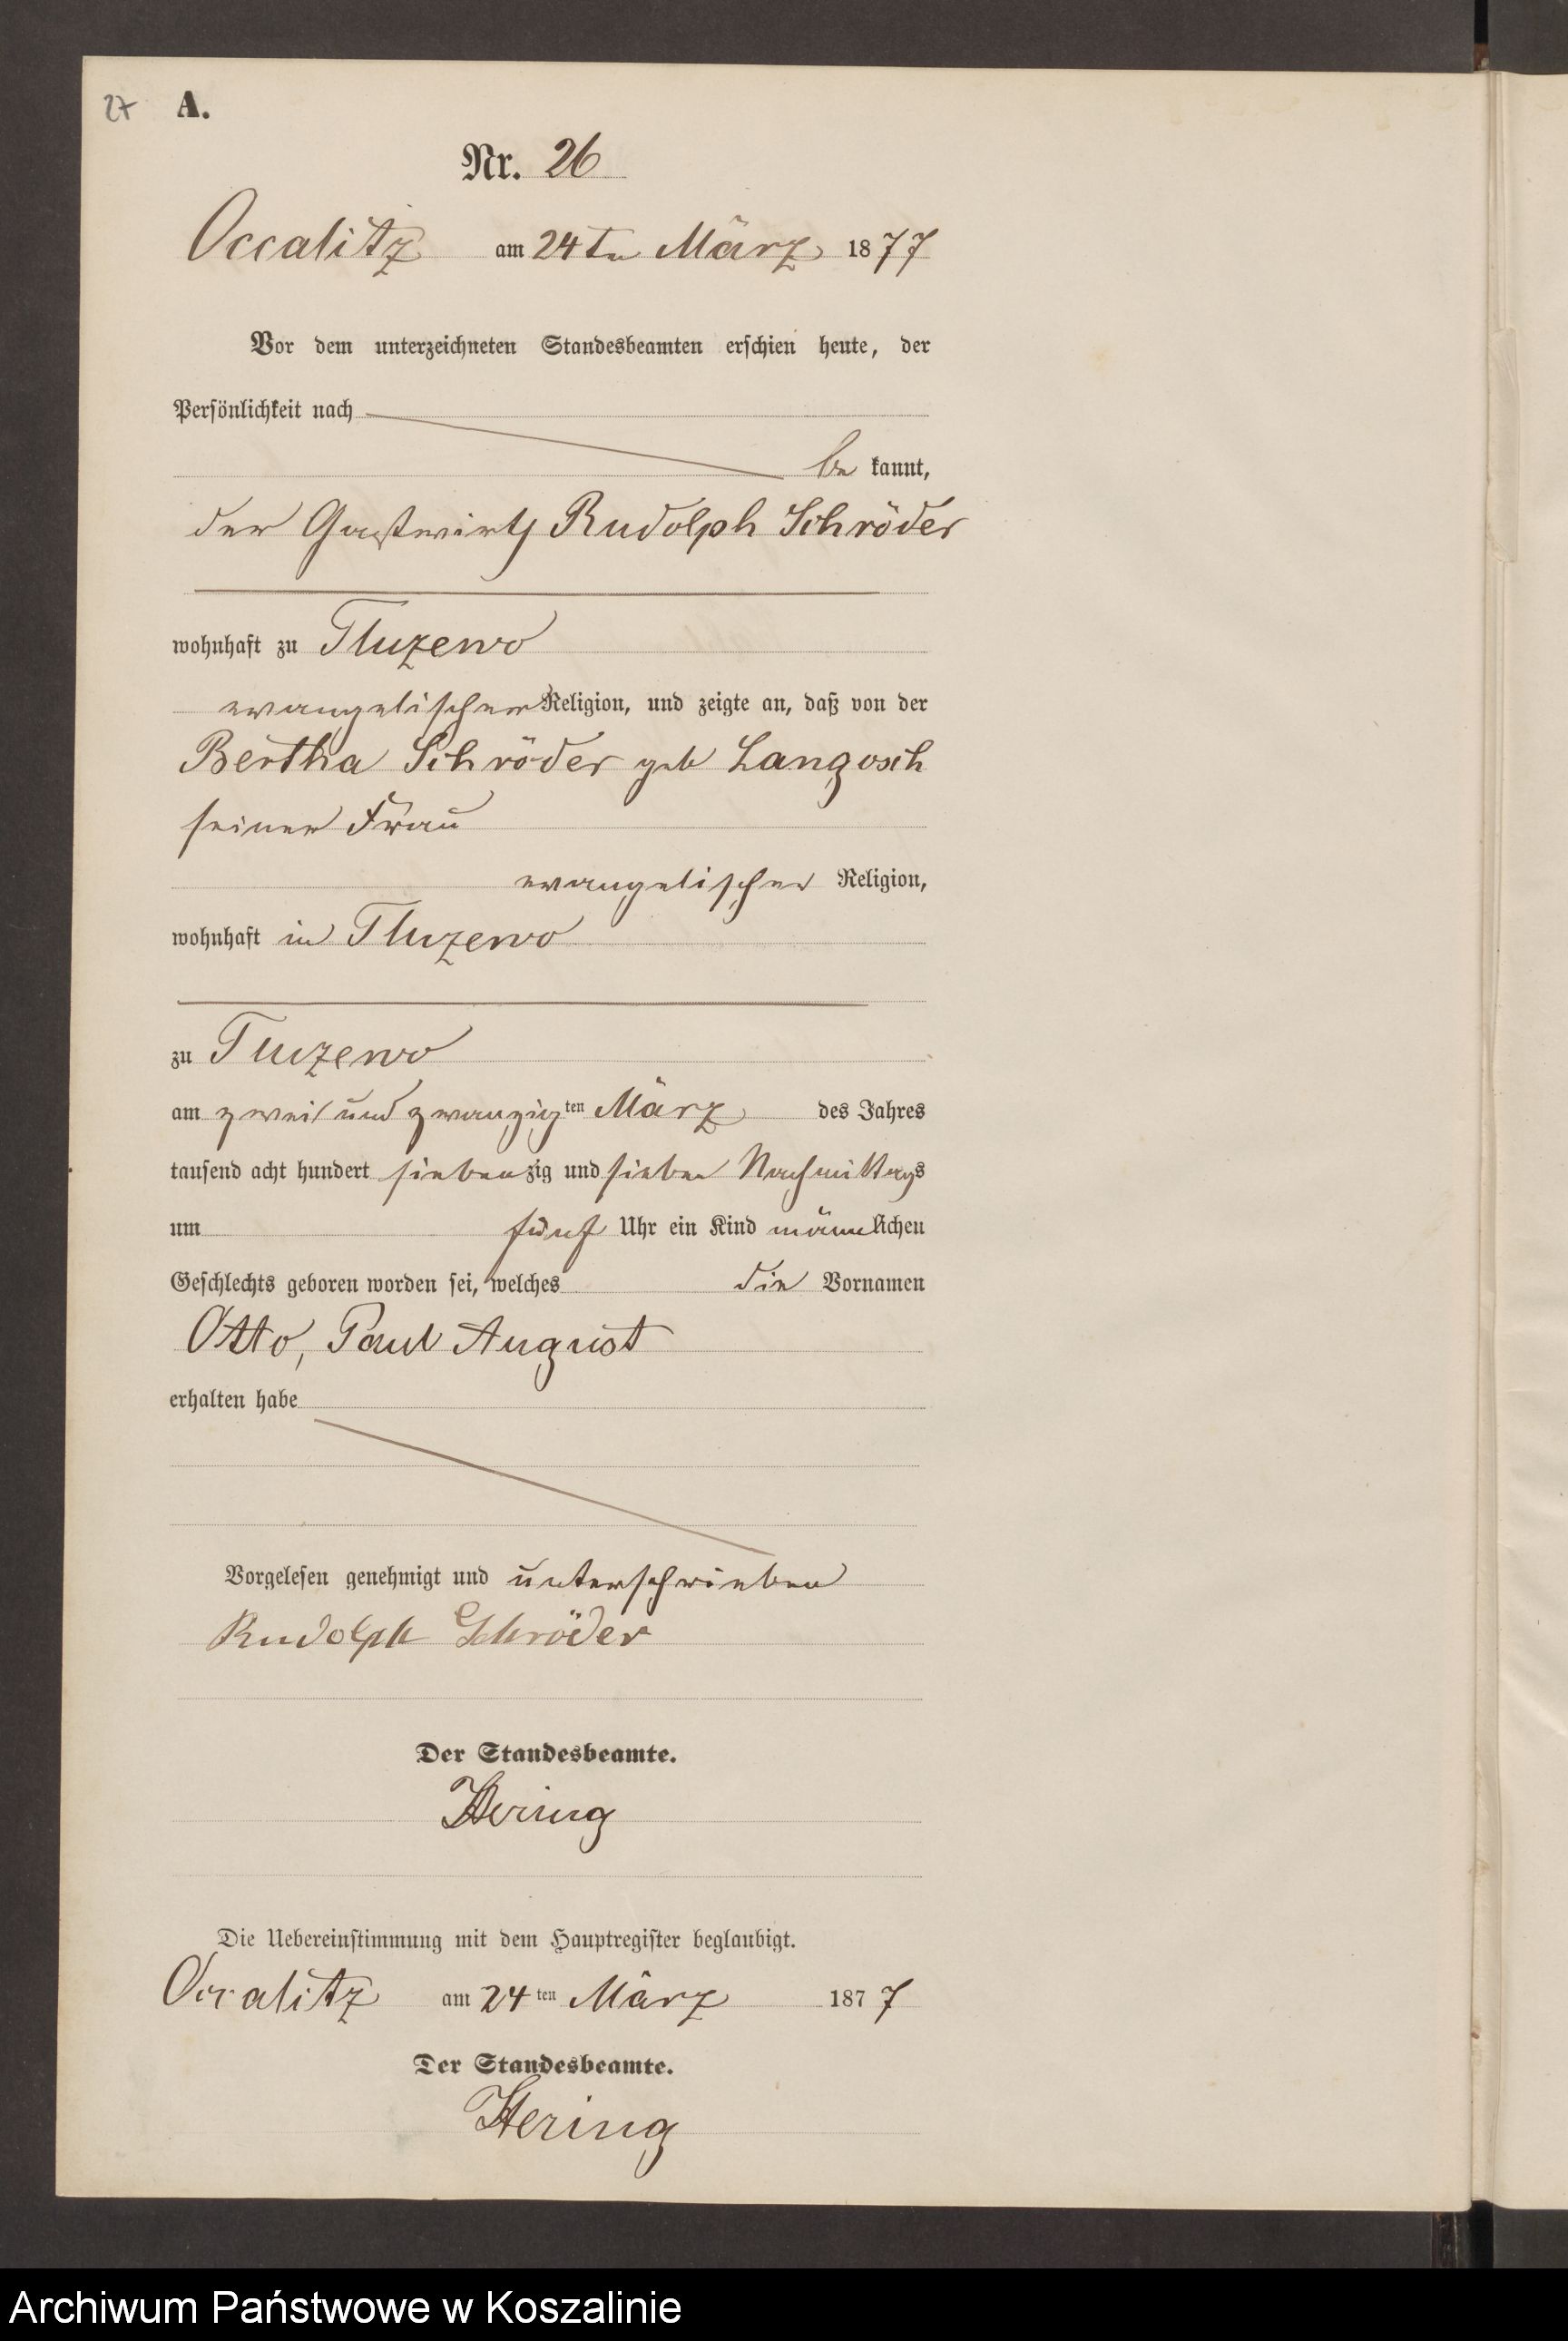 27 A.
Nr. 26
Occalitz am 24ten März 1877
Vor dem unterzeichneten Standesbeamten erschien heute, der
Persönlichkeit nach
be kannt,
der Gastwirth Rudolph Schröder
wohnhaft zu Tluzewo
evangelischer Religion, und zeigte an, daß von der
Bertha Schröder geb Langosch
seiner Frau
evangelischer Religion,
wohnhaft in Tluzewo
zu Tluzewo
am zwei und zwanzigten März des Jahres
tausend acht hundert siebenzig und sieben Nachmittags
um fünf Uhr ein Kind männlichen
Geschlechts geboren worden sei, welches die Vornamen
Otto, Paul August
erhalten habe
Vorgelesen genehmigt und unterschrieben
Rudolph Schröder
Der Standesbeamte.
Hering
Die Uebereinstimmung mit dem Hauptregister beglaubigt.
Occalitz am 24ten März 1877
Der Standesbeamte.
Hering
Archiwum Państwowe w Koszalinie